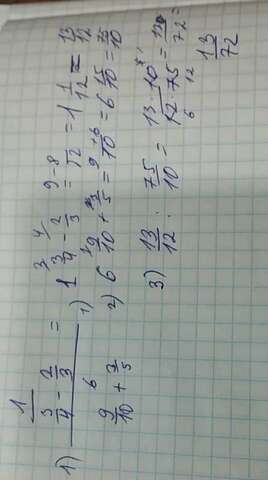 1) 1 3/4 - 2/3
6 9/10 + 3/5 =
1) 1 3/4 - 2/3 = 9-8/12 = 1 1/12 = 13/12
2) 6 9/10 + 3/5 = 9+6/10 = 6 15/10 = 75/10
3) 13/12 : 75/10 = 13·10/12·75 =
13/72